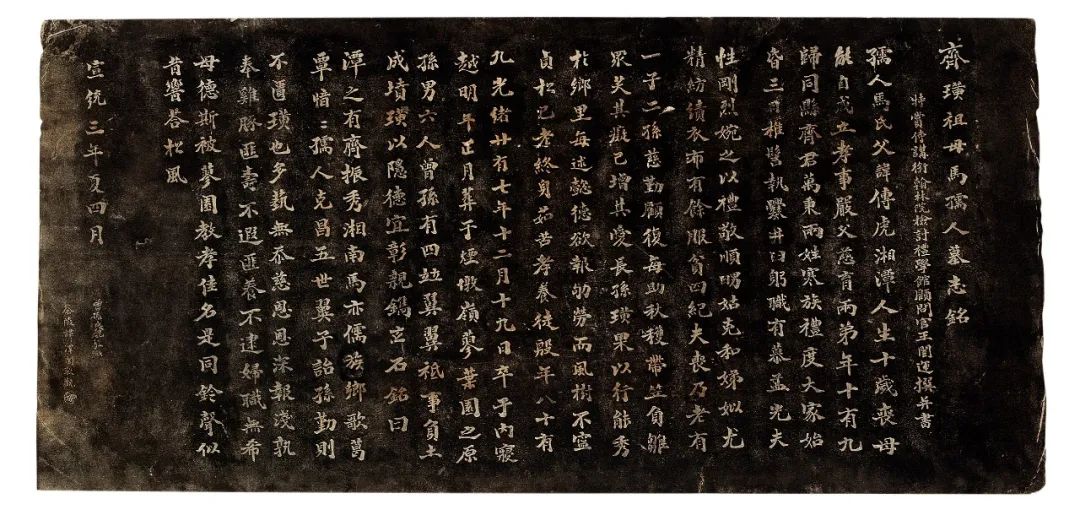 齊璜祖母馬孺人墓志銘
特賞侍講銜翰林院檢討禮學館顧問官王闓運撰并書
孺人馬氏父諱傳虎湘潭人生十歲喪母
能自成立孝事嚴父慈育兩弟年十有九
歸同縣齊君萬秉兩姓寒族禮度大家始
昏三日椎髻執爨井臼躬職有慕孟光夫
性剛烈婉之以禮敬順嚴姑克和娣姒尤
精紡績衣布有餘服賁四紀夫喪乃老有
一子二孫慈勤顧復每助秋穫帶笠負雛
眾笑其癡已增其愛長孫璜果以行能秀
於鄉里每述懿德欲報劬勞而風樹不寧
貞松已老終身茹苦孝養徒殷年八十有
九光緒廿有七年十二月十九日卒于內寢
越明年正月葬于煙墩嶺蓼葉園之原
孫男六人曾孫有四竝翼翼祗事負土
成墳璜以隱德宜彰親鐫玄石銘曰
潭之有齊振秀湘南馬亦儒族鄉歌葛
覃愔愔孺人克昌五世翼子詒孫勤則
不匱璜也多蓺無忝慈恩恩深報淺孰
奉雞豚匪壽不遐匪養不逮婦職無希
母德斯被蓼園教孝佳名是同鈴聲似
昔響答松風
宣統三年夏四月